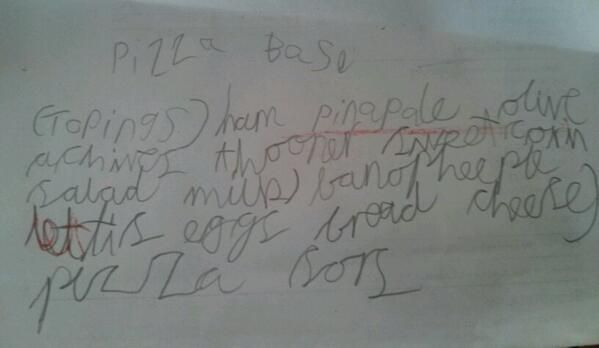 Pizza Base
(Topings) ham pinapale olive
achives thooner sweetcorn
salad milk)
lettis eggs bread cheese)
pizza sors